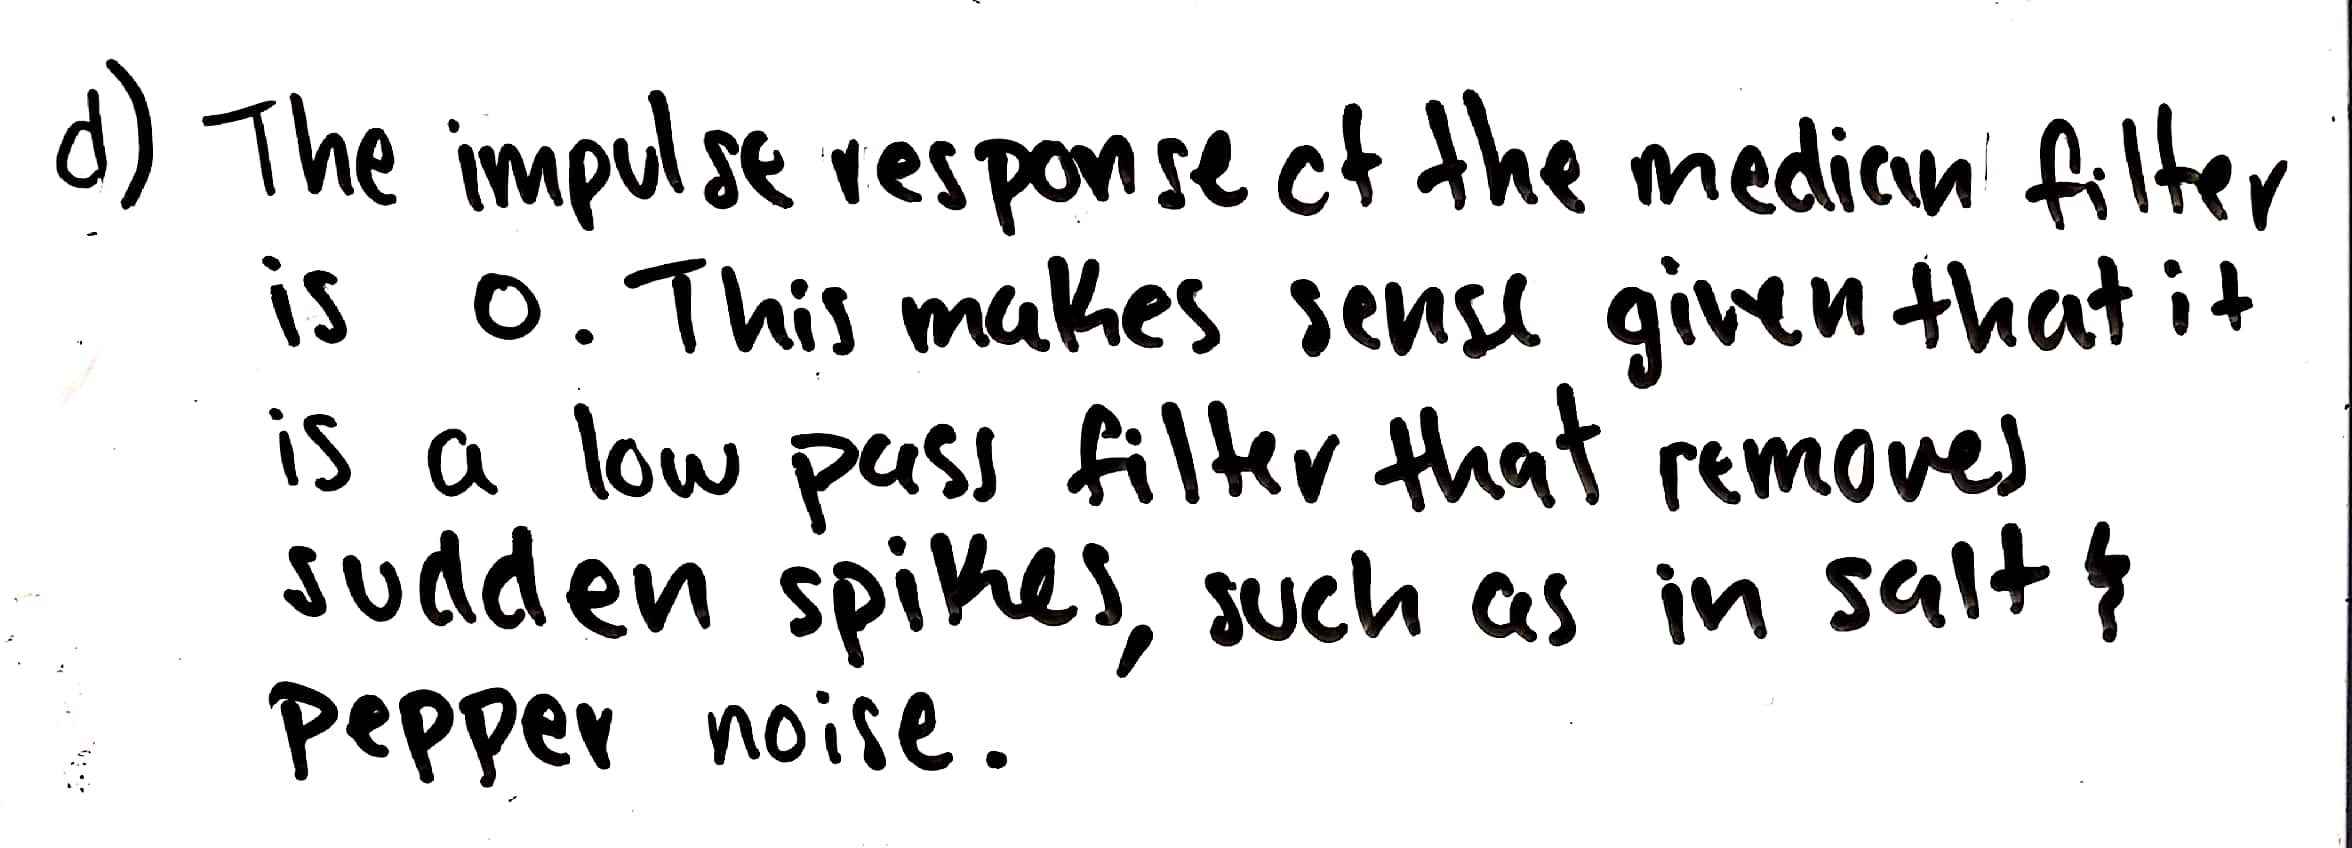 d) The impulse response of the median filter
is 0. This makes sense given that it
is a low pass filter that removes
sudden spikes, such as in salt &
pepper noise.